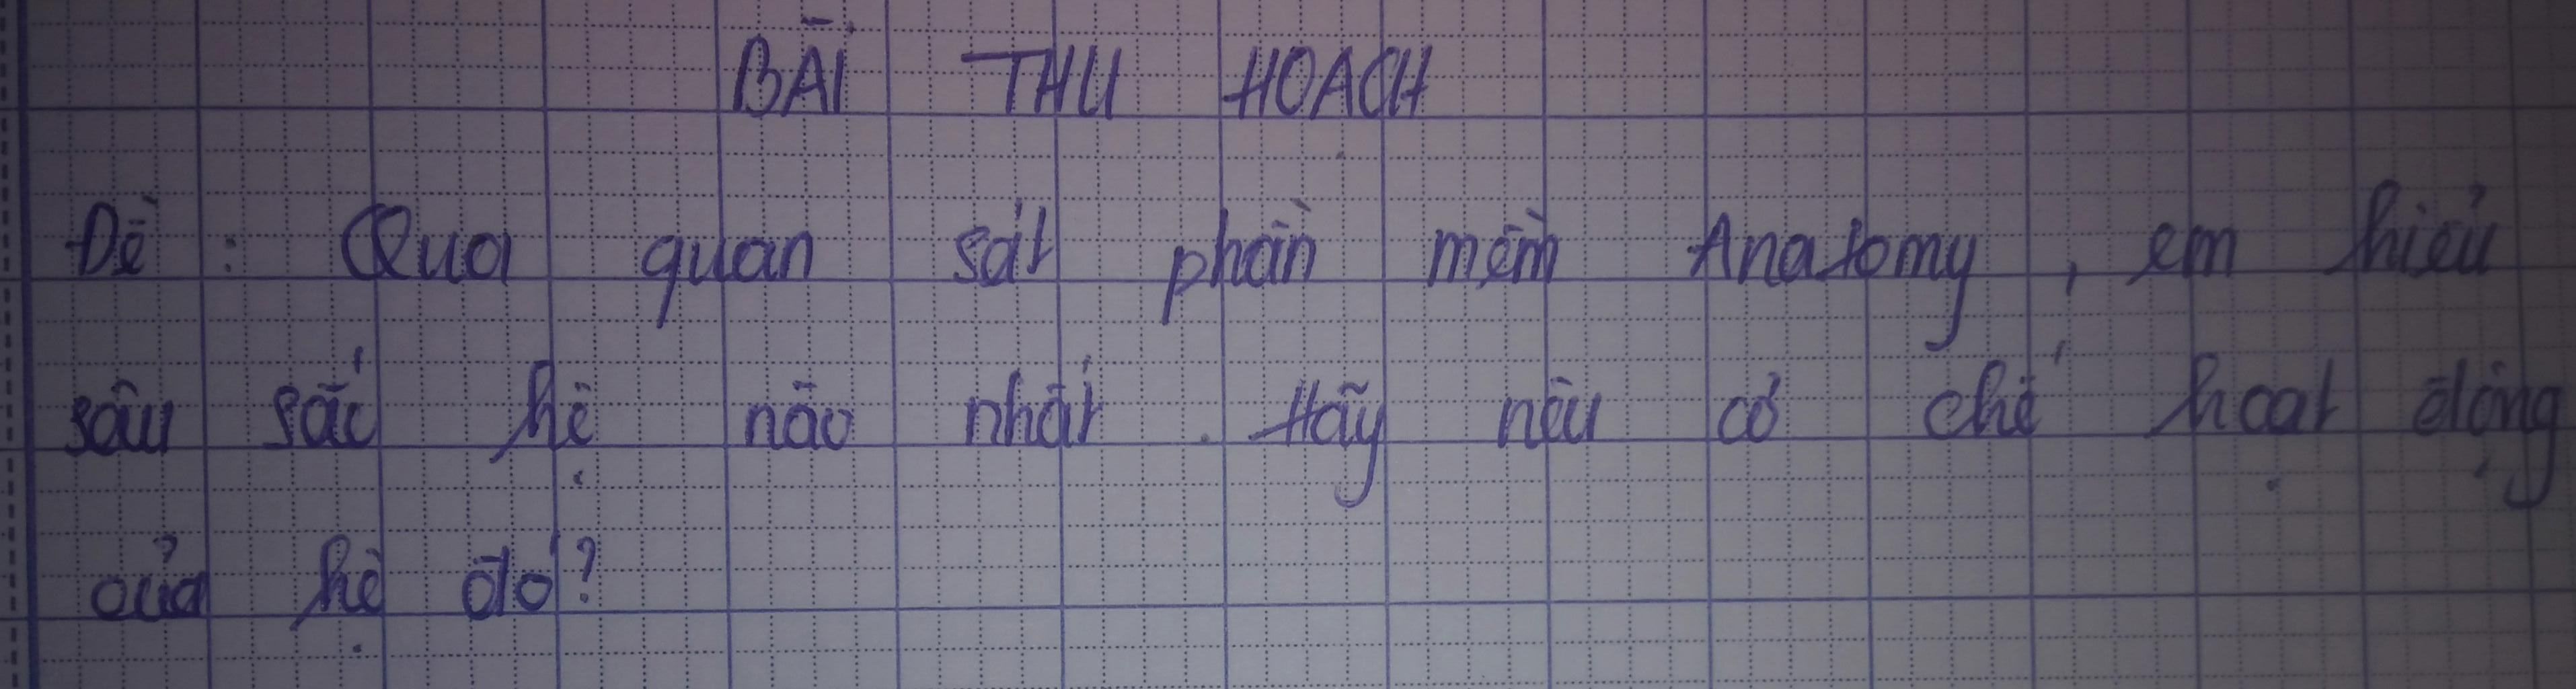 BÀI THU HOẠCH
Đề : Qua quan sát phần mềm Anatomy , em hiểu
sâu sắc hệ nào nhất . Hãy nêu cơ chế hoạt động
của hệ đó?